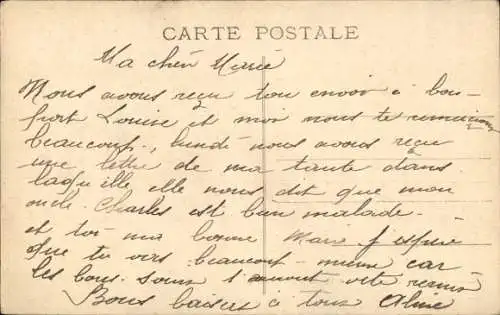 CARTE POSTALE
Ma chère Marie
Nous avons reçu ton envoi à bon
port Louise et moi nous te remercions
beaucoup, lundi nous avons reçu
une lettre de ma tante dans
laquelle elle nous dit que mon
oncle Charles est bien malade.
et toi ma bonne Marie j'espère
que tu vas beaucoup mieux car
les bons soins t'auront vite remis
Bons baisers à tous Aline